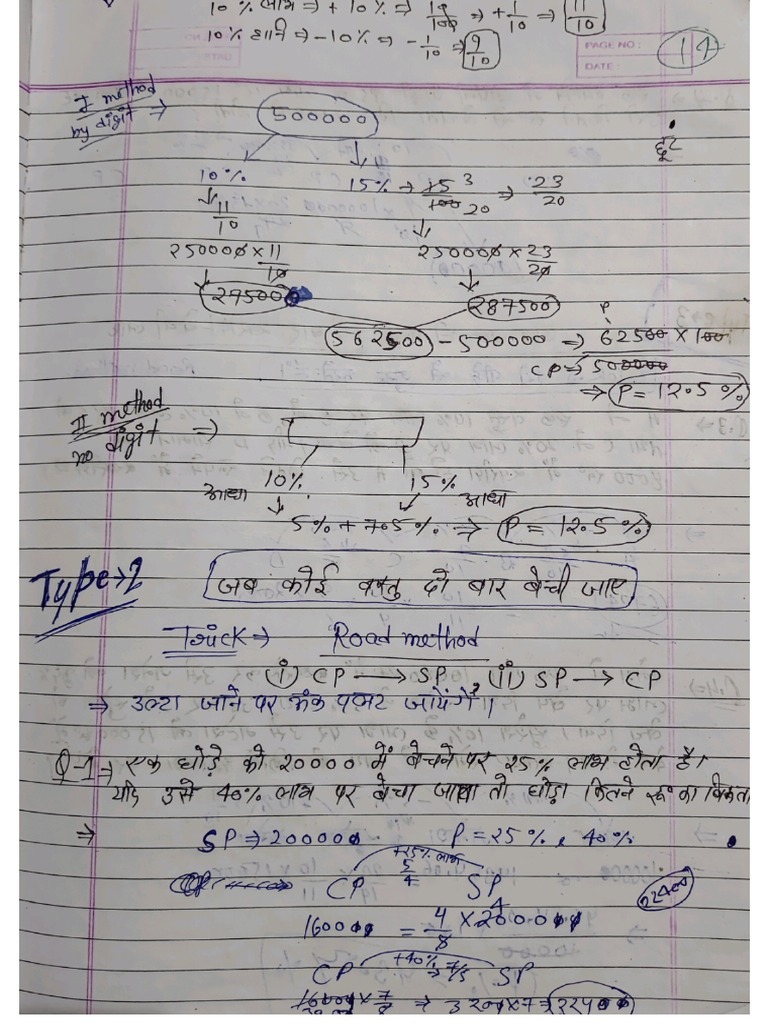 10% लाभ ⇒ +10% ⇒ 10/100 ⇒ +1/10 ⇒ 11/10
10% हानि ⇒ -10% ⇒ -1/10 ⇒ 9/10
PAGE NO: 14
DATE:
I method by digit ⇒ 500000
छूट
10% 15% → 15/100 3/20 ⇒ 23/20
11/10
250000 × 11/10 250000 × 23/20
275000 287500
562500 - 500000 ⇒ 62500 × 100
CP ⇒ 500000
⇒ P = 12.5%
II method no digit ⇒
10% 15%
आधा आधा
5% + 7.5% ⇒ P = 12.5%
Type→2 जब कोई वस्तु दो बार बेची जाए
Trick → Road method
(i) CP → SP, (ii) SP → CP
⇒ उल्टा जाने पर अंक पलट जायेंगे।
Q-1→ एक घोड़े को 20000 में बेचने पर 25% लाभ होता है।
यदि उसे 40% लाभ पर बेचा जाए तो घोड़ा कितने रू० का बिकता
⇒ SP ⇒ 20000 P = 25%, 40%
+25% लाभ
5/4
CP SP 22400
16000 = 4/5 × 20000
+40% ⇒ 7/5
CP SP
16000 × 7/5 ⇒ 3200 × 7 ⇒ 22400